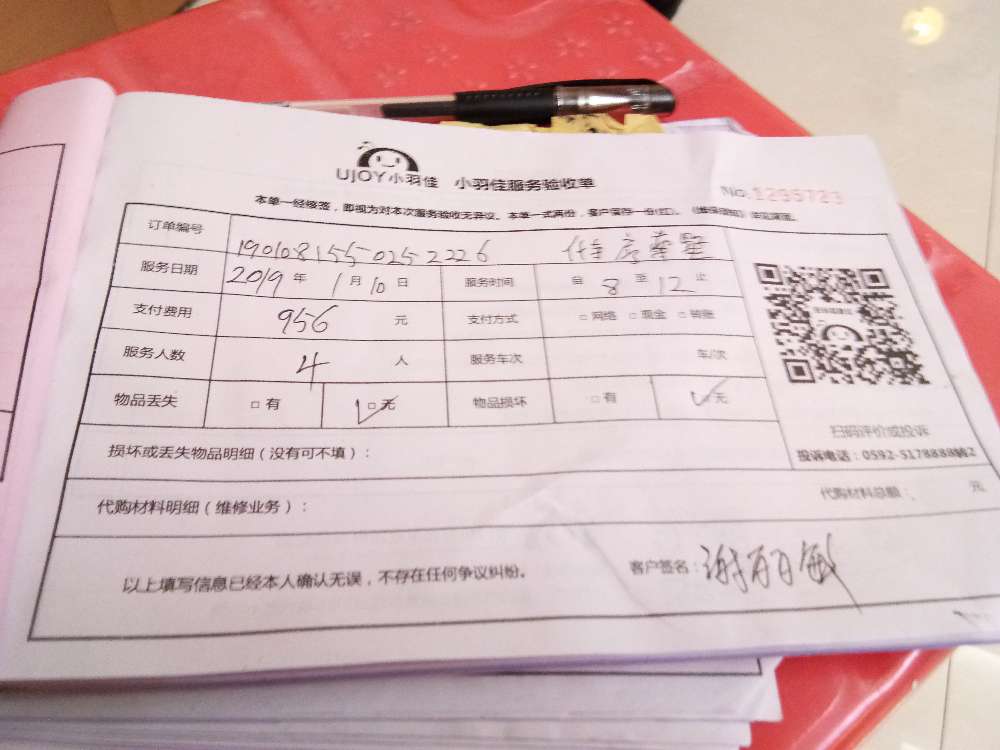 UJOY小羽佳 小羽佳服务验收单
No.1295723
本单一经签签，即视为对本次服务验收无异议。本单一式两份，客户保存一份(红)。
订单编号 190108155025 2226
服务日期 2019 年 1 月 10 日 服务时间 自 8 至 12 止
支付费用 956 元 支付方式 □网络 □现金 □转账
服务人数 4 人 服务车次 车/次
物品丢失 □有 □无 物品损坏 □有 □无
扫码评价或投诉
投诉电话：0592-5178888转2
损坏或丢失物品明细（没有可不填）：
代购材料明细（维修业务）： 代购材料总额： 元
以上填写信息已经本人确认无误，不存在任何争议纠纷。 客户签名：谢丽敏